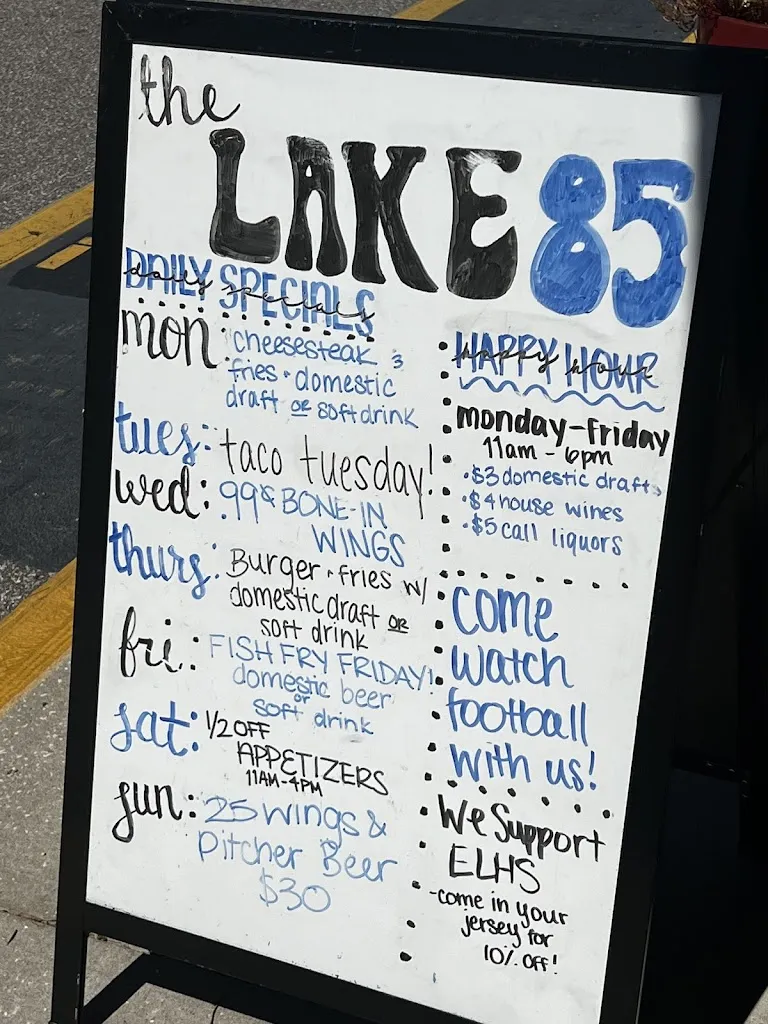 the
LAKE 85
DAILY SPECIALS
daily specials
mon: cheesesteak &
fries • domestic
draft or soft drink
tues: taco tuesday!
wed: .99¢ BONE-IN
WINGS
thurs: Burger • fries w/
domestic draft or
soft drink
fri: FISH FRY FRIDAY!
domestic beer
or
soft drink
sat: 1/2 OFF
APPETIZERS
11AM-4PM
sun: 25 wings &
Pitcher Beer
$30
HAPPY HOUR
happy hour
monday-Friday
11am - 6pm
• $3 domestic drafts
• $4 house wines
• $5 call liquors
come
watch
football
with us!
We Support
ELHS
-come in your
jersey for
10% off!